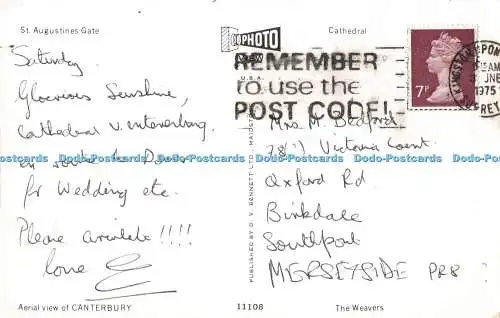 St. Augustines Gate
Cathedral
Saturday
Glorious Sunshine,
Cathedral v. interesting.
en route to Dover
for Wedding etc.
Please circulate !!!!
love E
Aerial view of CANTERBURY
11108
The Weavers
PHOTO
VIEW
U.S.A.
PUBLISHED BY D. V. BENNETT LTD., MAIDSTONE
REMEMBER
to use the
POST CODE!
7P
KINGSTON UPON
AM
JNE
1975
SURREY
Mrs M. Bedford
Victoria Court
Oxford Rd
Birkdale
Southport
MERSEYSIDE PR8
Dodo-Postcards Dodo-Postcards Dodo-Postcards Dodo-Postcards Dodo-Postcards Dodo-Postcards